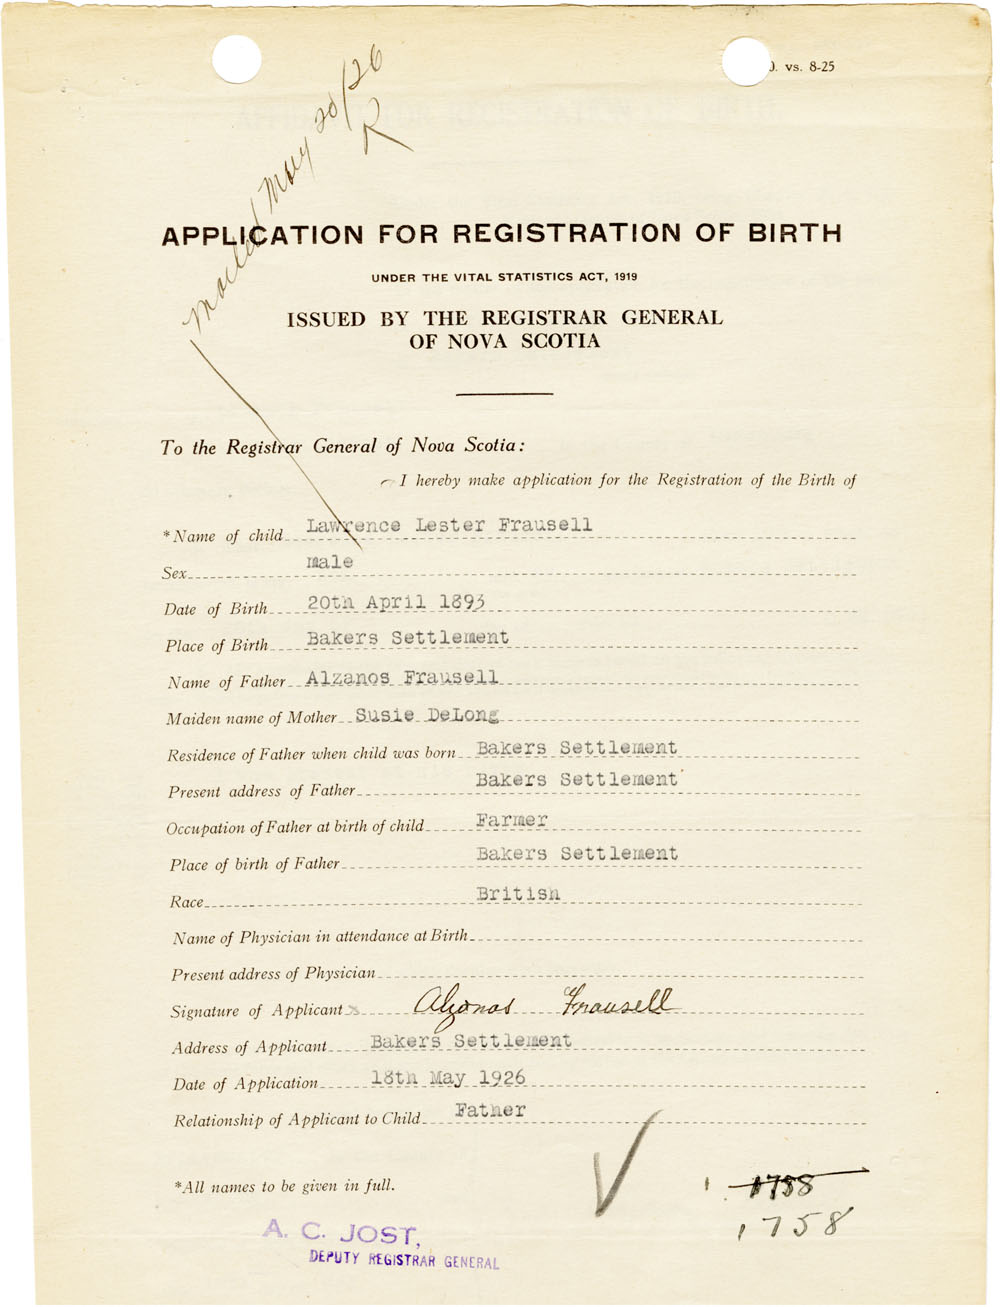 Mailed May 20/26
R
0. vs. 8-25
APPLICATION FOR REGISTRATION OF BIRTH
UNDER THE VITAL STATISTICS ACT, 1919
ISSUED BY THE REGISTRAR GENERAL
OF NOVA SCOTIA
To the Registrar General of Nova Scotia:
I hereby make application for the Registration of the Birth of
*Name of child Lawrence Lester Frausell
Sex male
Date of Birth 20th April 1893
Place of Birth Bakers Settlement
Name of Father Alzanos Frausell
Maiden name of Mother Susie DeLong
Residence of Father when child was born Bakers Settlement
Present address of Father Bakers Settlement
Occupation of Father at birth of child Farmer
Place of birth of Father Bakers Settlement
Race British
Name of Physician in attendance at Birth
Present address of Physician
Signature of Applicant x Alzonas Frausell
Address of Applicant Bakers Settlement
Date of Application 18th May 1926
Relationship of Applicant to Child Father
*All names to be given in full.
1758
A. C. JOST,
DEPUTY REGISTRAR GENERAL